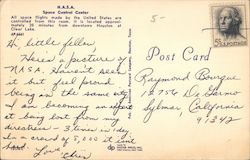 N.A.S.A.
Space Control Center
All space flights made by the United States are
controlled from this room. It is located approxi-
mately 20 minutes from downtown Houston at
Clear Lake.
Hi, little feller,
Here's a picture of
NASA. Haven't seen
it but feel great
being in the same city.
I am becoming an expert
at being lost from my
directress - 3 times in 1 day
in a crowd of 8,000 it isn't
hard. Love Chris
Post Card
Raymond Bourque
De Garmo
Sylmar, California
91342
5¢